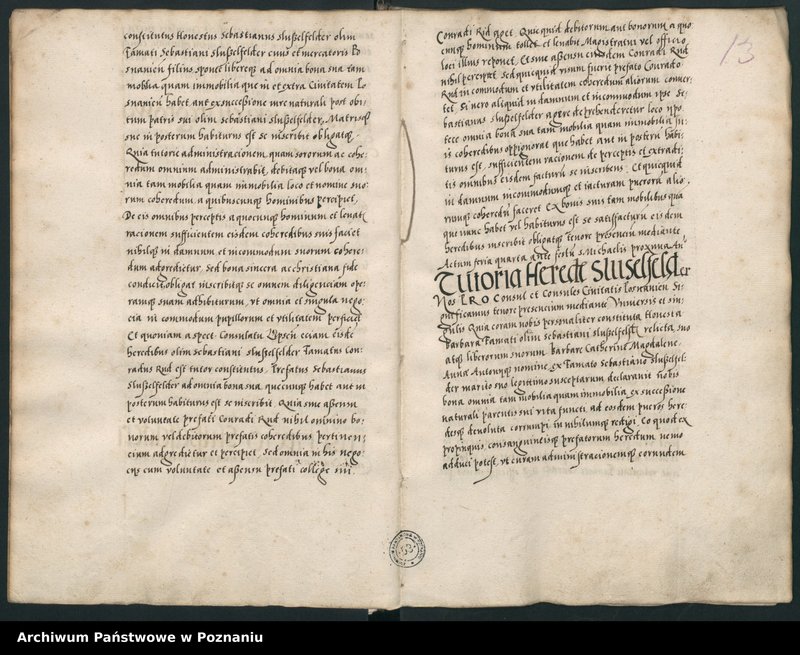 constitutus Honestus Sebastianus slusselfelder olim
Famati Sebastiani slusselfelder civis et mercatoris Po
snanien filius sponte libereq ad omnia bona sua tam
mobilia quam immobilia que in et extra Civitatem Po
snanien habet aut ex successione iure naturali post obi
tum patris sui olim sebastiani slusselfelder, Matrisq
sue in posterum habiturus est se inscribit obligatq
Quia tutorie administracionem, quam sororum ac cohe
redum omnium administrabit, debitaq vel bona om
nia tam mobilia quam immobilia loco et nomine suo
rum coheredum a quibuscunq hominibus percipiet,
De eis omnibus perceptis a quocunq hominum et
racionem sufficientem eisdem coheredibus suis faciet
nihilq in damnum et incommodum suorum cohere
dum adgredietur, Sed bona sincera ac christiana fide
obligat inscribitq se omnem diligenciam ope
ramq suam adhibiturum, ut omnia et singula nego
cia in commodum pupillorum et utilitatem perficiet
Et quoniam a spect. Consulatu eciam eisdem
heredibus olim sebastiani slusselfelder Famatus Con
radus Rud est tutor constitutus. Prefatus Sebastianus
slusselfelder ad omnia bona sua, quecunq habet aut in
posterum habiturus est se inscribit. Quia sine assensu
et voluntate prefati Conradi Rud nihil omnino bo
norum vel debitorum prefatis coheredibus pertinen
cium adgredietur et percipiet, sed omnia in his nego
ciis cum voluntate et assensu prefati
13
Conradi Rud aget. Quicquid debitorum aut bonorum a quo
cunq hominum tollet et levabit Magistratui vel officio
loci illius reponet. Et sine assensu eiusdem Conradi Rud
nihil percipiat. Sed quicquid visum fuerit prefato Conrado
Rud in commodum et utilitatem coheredum aliorum conver
tet. Si vero aliquid in damnum et incommodum ipse Se
bastianus slusselfelder agere deprehenderetur loco
omnia bona sua tam mobilia quam immobilia
is coheredibus oppignorat que habet aut in posterum habi
turus est, sufficientem racionem de perceptis et
tis omnibus eisdem facturum se inscribens. Et quicquid
in damnum incommodumq et facturam puerorum alio
rumq coheredum faceret Ex bonis suis tam mobilibus qua
que nunc habet vel habiturus est se satisfacturum eisdem
heredibus inscribit obligatq tenore presencium mediante
Actum feria quarta ante festum S. Michaelis proxima
Tutoria Herede Sluselfelder
Nos Consul et Consules Civitatis Posnanien Si
gnificamus tenore presencium mediante Universis et sin
gulis Quia coram nobis personaliter constituta Honesta
Barbara Famati olim sebastiani slusselfelder relicta, suo
atq liberorum suorum Barbare Catherine Magdalene
Anne Antoniiq nomine, ex Famato sebastiano slusselfel
der marito suo legitimo susceptorum declaravit nobis
bona omnia tam mobilia quam immobilia ex successione
naturali parentis sui vita functi, ad eosdem pueros here
desq devoluta corrumpi, in nihilumq redigi, Eo quod ex
propinquis, consanguineisq prefatorum heredum nemo
adduci potest, ut curam administracionemq eorundem
53
Archiwum Państwowe w Poznaniu